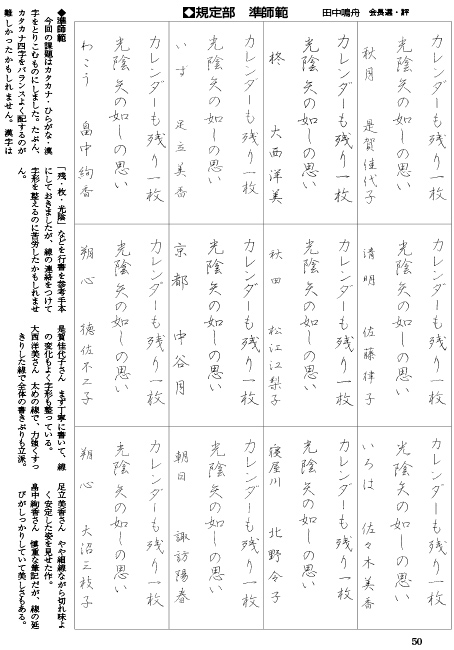 ◆規定部　準師範
田中鳴舟　会長選・評
カレンダーも残り一枚
光陰矢の如しの思い
秋月　是賀佳代子
カレンダーも残り一枚
光陰矢の如しの思い
柊　大西洋美
カレンダーも残り一枚
光陰矢の如しの思い
いず　足立美香
カレンダーも残り一枚
光陰矢の如しの思い
わこう　畠中絢香
カレンダーも残り一枚
光陰矢の如しの思い
清明　佐藤律子
カレンダーも残り一枚
光陰矢の如しの思い
秋田　松江江梨子
カレンダーも残り一枚
光陰矢の如しの思い
京都　中谷月
カレンダーも残り一枚
光陰矢の如しの思い
朔心　徳佐不二子
カレンダーも残り一枚
光陰矢の如しの思い
いろは　佐々木美香
カレンダーも残り一枚
光陰矢の如しの思い
寝屋川　北野令子
カレンダーも残り一枚
光陰矢の如しの思い
朝日　諏訪陽春
カレンダーも残り一枚
光陰矢の如しの思い
朔心　大沼三枝子
◆準師範
今回の課題はカタカナ・ひらがな・漢
字をとりこむものにしました。たぶん、
カタカナ四字をバランスよく配するのが
難しかったかもしれません。漢字は
「残・枚・光陰」などを行書を参考手本
にしておきましたが、線の連絡をつけて
字形を整えるのに苦労したかもしれませ
ん。
是賀佳代子さん　まず丁寧に書いて、線
の変化もよく字形も整っている。
大西洋美さん　太めの線で、力強くすっ
きりした線で全体の書きぶりも立派。
足立美香さん　やや細線ながら切れ味よ
く安定した姿を見せた作。
畠中絢香さん　慎重な筆記だが、線の延
びがしっかりしていて美しさもある。
50